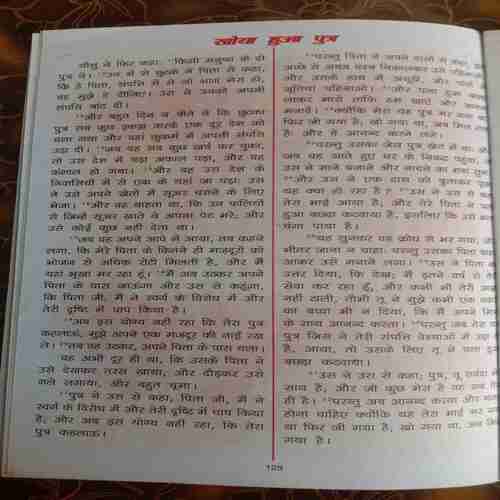 खोया हुआ पुत्र
यीशु ने फिर कहा: "किसी मनुष्य के दो
पुत्र थे। उन में से छुटके ने पिता से कहा,
कि हे पिता, संपत्ति में से जो भाग मेरा हो,
वह मुझे दे दीजिए। उस ने उनको अपनी
संपत्ति बांट दी।
"और बहुत दिन न बीते थे कि छुटका
पुत्र सब कुछ इकट्ठा करके एक दूर देश को
चला गया और वहां कुकर्म में अपनी संपत्ति
उड़ा दी। जब वह सब कुछ खर्च कर चुका,
तो उस देश में बड़ा अकाल पड़ा, और वह
कंगाल हो गया। और वह उस देश के
निवासियों में से एक के यहां जा पड़ा: उस
ने उसे अपने खेतों में सूअर चराने के लिए
भेजा। और वह चाहता था, कि उन फलियों
से जिन्हें सूअर खाते थे अपना पेट भरे; और
उसे कोई कुछ नहीं देता था।
"जब वह अपने आपे में आया, तब कहने
लगा, कि मेरे पिता के कितने ही मजदूरों को
भोजन से अधिक रोटी मिलती है, और मैं
यहां भूखा मर रहा हूं। मैं अब उठकर अपने
पिता के पास जाऊंगा और उस से कहूंगा,
कि पिता जी, मैं ने स्वर्ग के विरोध में और
तेरी दृष्टि में पाप किया है।
"अब इस योग्य नहीं रहा कि तेरा पुत्र
कहलाऊं, मुझे अपने एक मजदूर की नाईं रख
ले। तब वह उठकर, अपने पिता के पास चला।
वह अभी दूर ही था, कि उसके पिता ने
उसे देखकर तरस खाया, और दौड़कर उसे
गले लगाया, और बहुत चूमा।
"पुत्र ने उस से कहा; पिता जी, मैं ने
स्वर्ग के विरोध में और तेरी दृष्टि में पाप किया
है; और अब इस योग्य नहीं रहा, कि तेरा
पुत्र कहलाऊं।
"परन्तु पिता ने अपने दासों से कहा,
अच्छे से अच्छा वस्त्र निकालकर उसे पहिनाओ
और उसके हाथ में अंगूठी, और पांवों में
जूतियां पहिनाओ। और पला हुआ
लाकर मारो ताकि हम खाएं और आनन्द
मनावें। क्योंकि मेरा यह पुत्र मर गया
फिर जी गया है, खो गया था, अब मिल
है: और वे आनन्द करने लगे।
"परन्तु उसका जेठ पुत्र खेत में था
जब वह आते हुए घर के निकट पहुंचा,
उस ने गाने बजाने और नाचने का शब्द सुना
और उस ने एक दास को बुलाकर पूछा
यह क्या हो रहा है? उस ने उस से
तेरा भाई आया है, और तेरे पिता ने
हुआ बछड़ा कटवाया है, इसलिए कि उसे
चंगा पाया है।
"यह सुनकर वह क्रोध से भर गया,
भीतर जाना न चाहा: परन्तु उसका पिता बाहर
आकर उसे मनाने लगा। उस ने पिता
उत्तर दिया, कि देख; मैं इतने वर्ष से
सेवा कर रहा हूं, और कभी भी तेरी
नहीं टाली, तौभी तू ने मुझे कभी एक
का बच्चा भी न दिया, कि मैं अपने
के साथ आनन्द करता। परन्तु जब तेरा
पुत्र जिस ने तेरी संपत्ति वेश्याओं में
है, आया, तो उसके लिए तू ने पला
बछड़ा कटवाया।
"उस ने उस से कहा; पुत्र, तू सर्वदा
साथ है, और जो कुछ मेरा है वह सब
ही है। परन्तु अब आनन्द करना और
होना चाहिए क्योंकि यह तेरा भाई मर
था फिर जी गया है, खो गया था, अब
गया है।
125